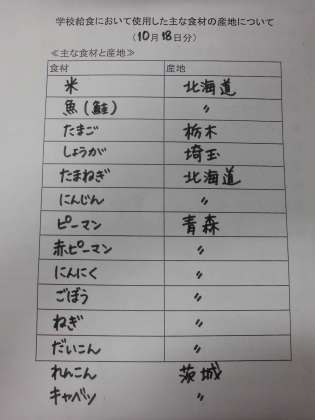 学校給食において使用した主な食材の産地について
（10月18日分）
≪主な食材と産地≫
食材 産地
米 北海道
魚(鮭) 〃
たまご 栃木
しょうが 埼玉
たまねぎ 北海道
にんじん 〃
ピーマン 青森
赤ピーマン 〃
にんにく 〃
ごぼう 〃
ねぎ 〃
だいこん 〃
れんこん 茨城
キャベツ 〃